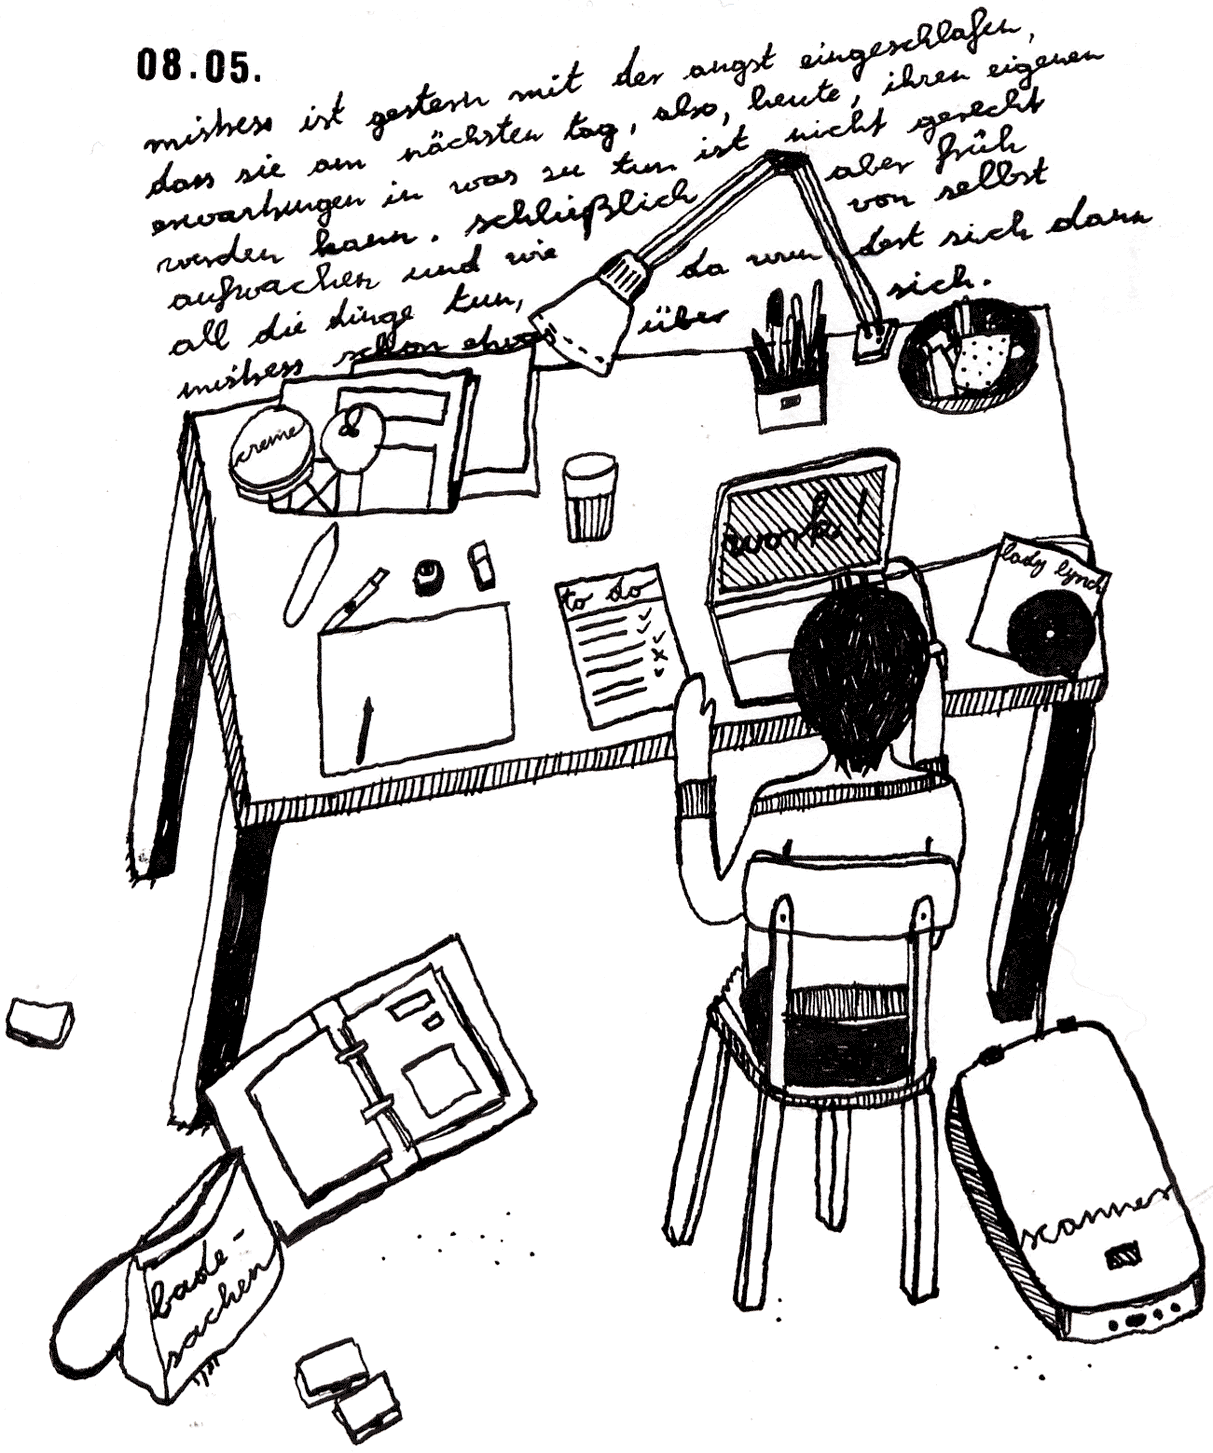 08.05.
mistress ist gestern mit der angst eingeschlafen,
dass sie am nächsten tag, also, heute, ihren eigenen
erwartungen in was zu tun ist nicht gerecht
werden kann. schließlich aber früh
aufwachen und wie von selbst
all die dinge tun, da wundert sich dann
mistress schon etwas über sich.
creme
work!
to do
lady lynch
scanner
bade-
sachen